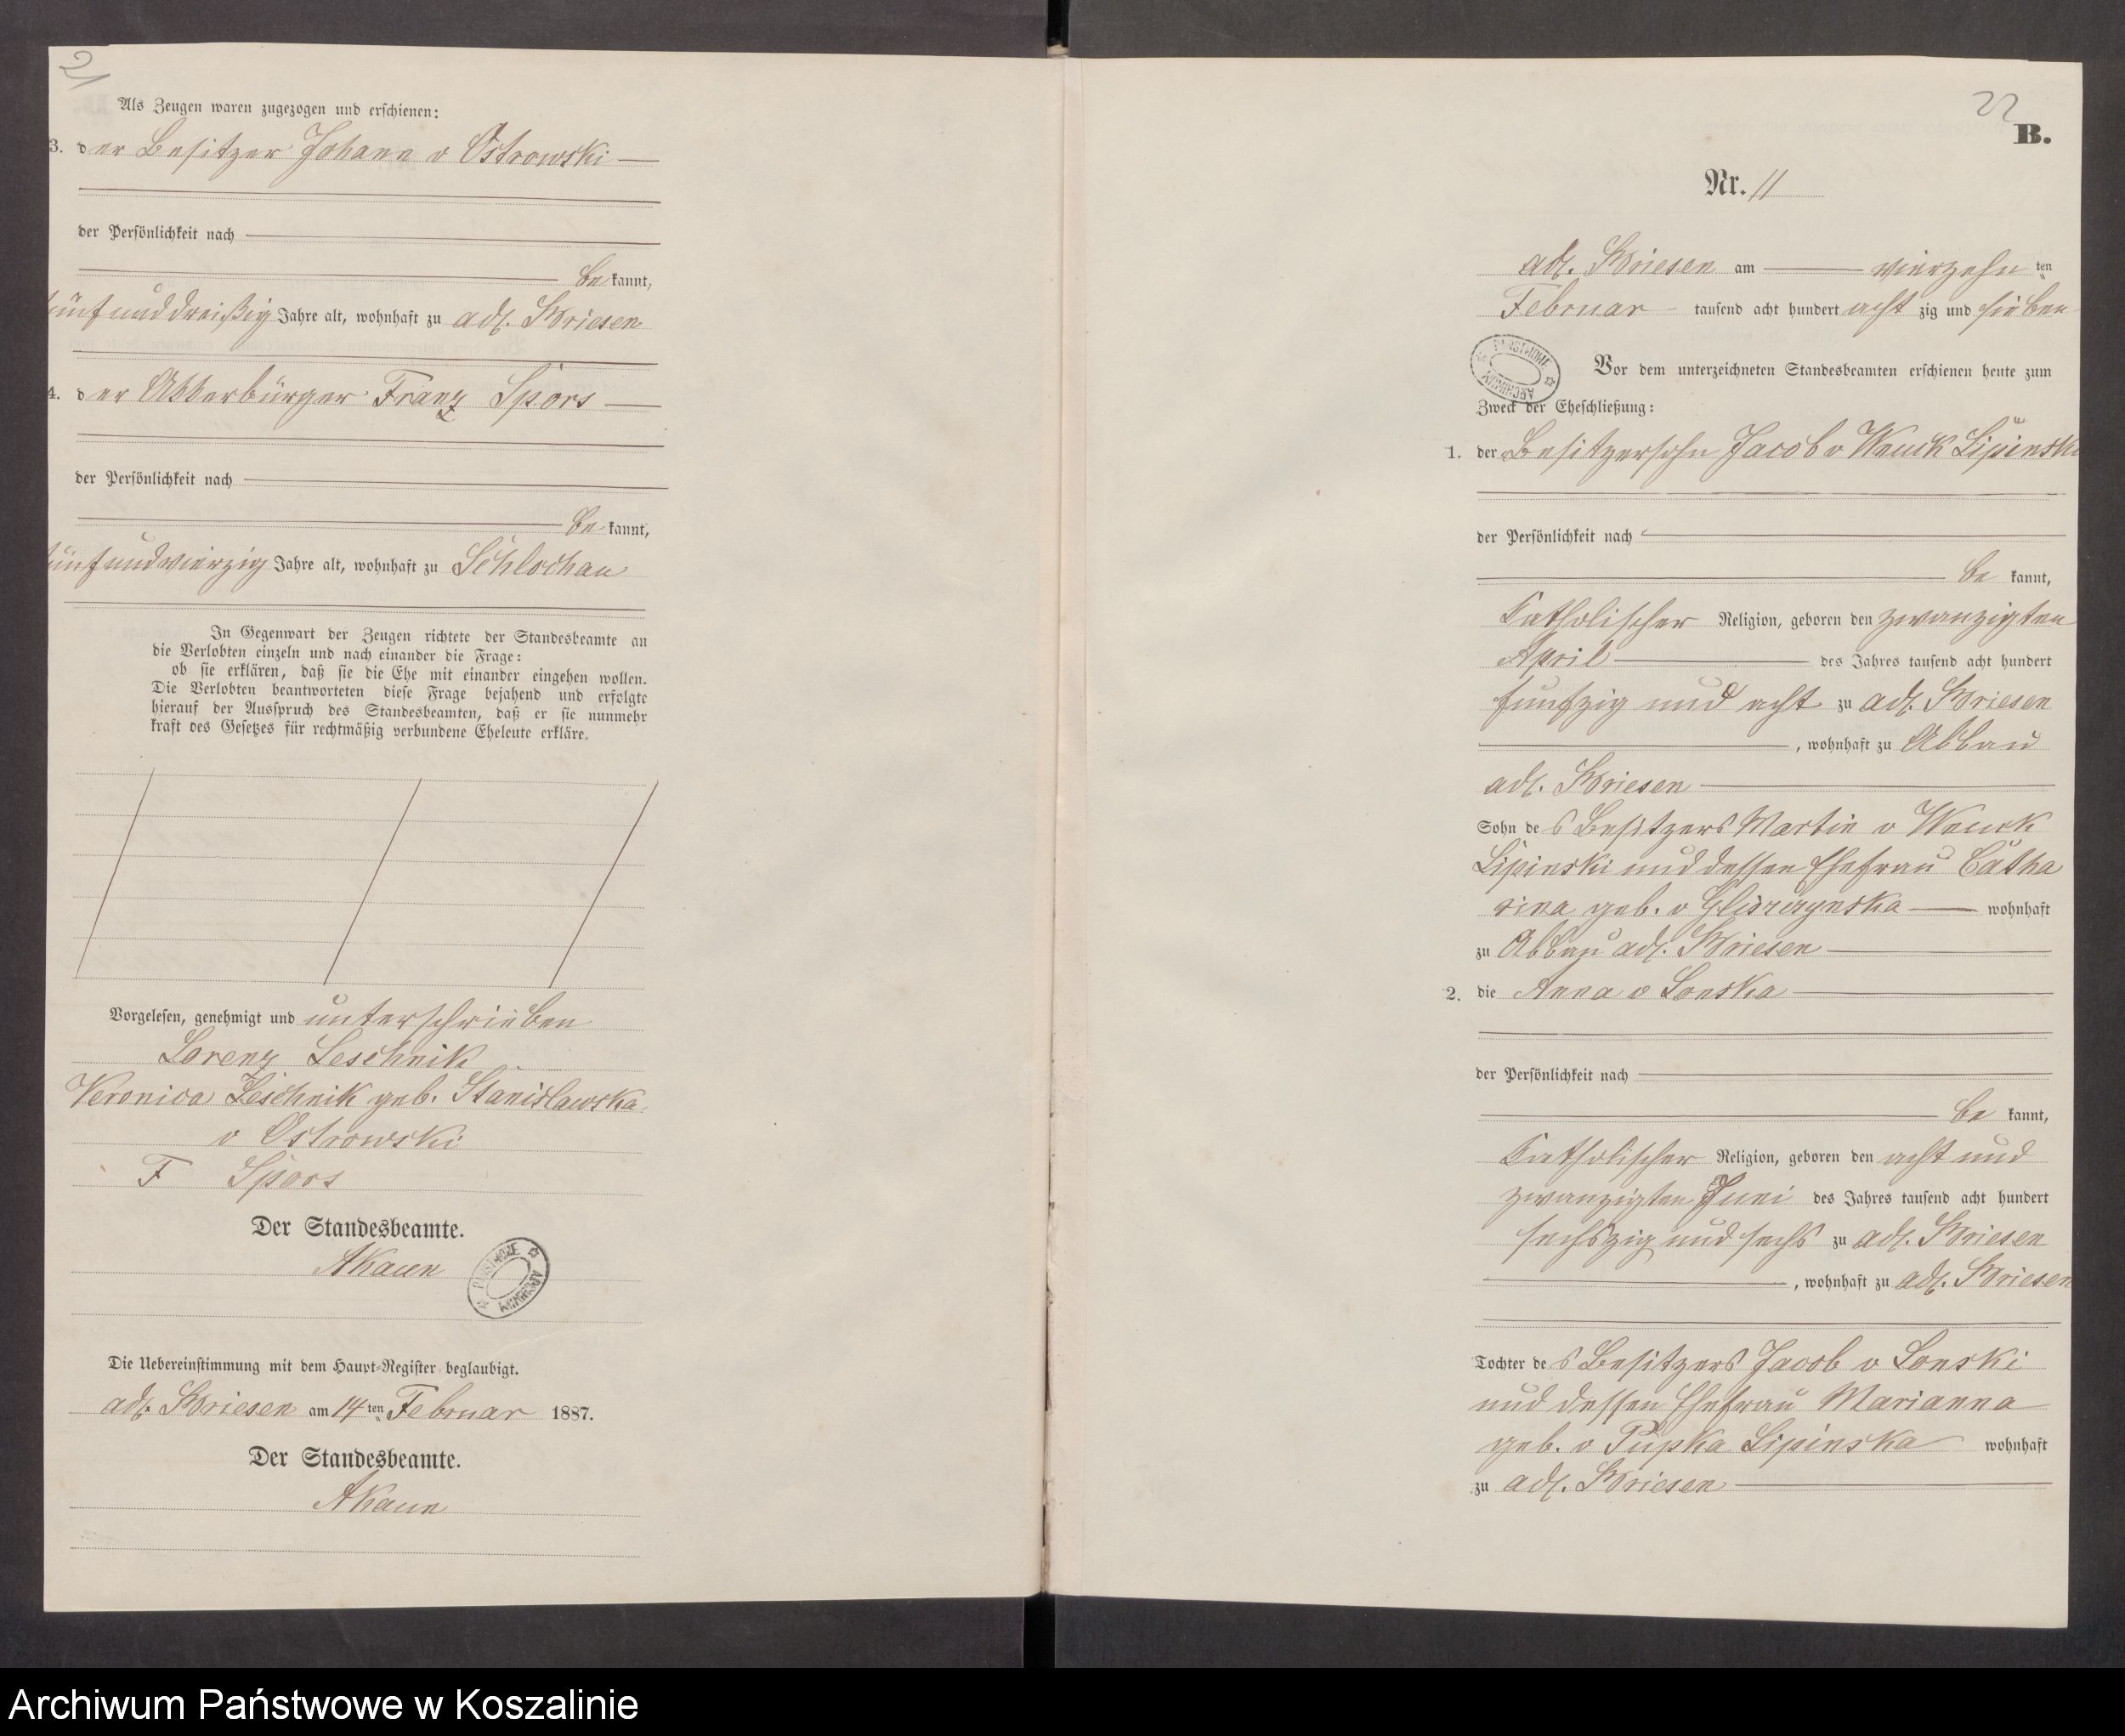 21
Als Zeugen waren zugezogen und erschienen:
3. der Besitzer Johann v Ostrowski
der Persönlichkeit nach
bekannt,
fünfunddreißig Jahre alt, wohnhaft zu adl. Briesen
4. der Ackerbürger Franz Spors
der Persönlichkeit nach
bekannt,
fünfundvierzig Jahre alt, wohnhaft zu Schlochau
In Gegenwart der Zeugen richtete der Standesbeamte an
die Verlobten einzeln und nach einander die Frage:
ob sie erklären, daß sie die Ehe mit einander eingehen wollen.
Die Verlobten beantworteten diese Frage bejahend und erfolgte
hierauf der Ausspruch des Standesbeamten, daß er sie nunmehr
kraft des Gesetzes für rechtmäßig verbundene Eheleute erkläre.
Vorgelesen, genehmigt und unterschrieben
Lorenz Leschnik
Veronica Leschnik geb. Stanislawska.
v Ostrowski
F Spors
Der Standesbeamte.
PAŃSTWOWE ARCHIWUM
Die Uebereinstimmung mit dem Haupt-Register beglaubigt.
adl. Briesen am 14ten Februar 1887.
Der Standesbeamte.
22
B.
Nr. 11
adl. Briesen am vierzehnten
Februar tausend acht hundert achtzig und sieben
PAŃSTWOWE ARCHIWUM
Vor dem unterzeichneten Standesbeamten erschienen heute zum
Zweck der Eheschließung:
1. der Besitzersohn Jacob v Wenck Lipinski
der Persönlichkeit nach
bekannt,
katholischer Religion, geboren den zwanzigten
April des Jahres tausend acht hundert
funfzig und acht zu adl. Briesen
, wohnhaft zu Abbau
adl. Briesen
Sohn des Besitzers Martin v Wenck
Lipinski und dessen Ehefrau Catha
rina geb. v Gliszczynska wohnhaft
zu Abbau adl. Briesen
2. die Anna v Lonska
der Persönlichkeit nach
bekannt,
katholischer Religion, geboren den acht und
zwanzigten Juni des Jahres tausend acht hundert
sechszig und sechs zu adl. Briesen
, wohnhaft zu adl. Briesen
Tochter des Besitzers Jacob v Lonski
und dessen Ehefrau Marianna
geb. v Pupka Lipinska wohnhaft
zu adl. Briesen
Archiwum Państwowe w Koszalinie